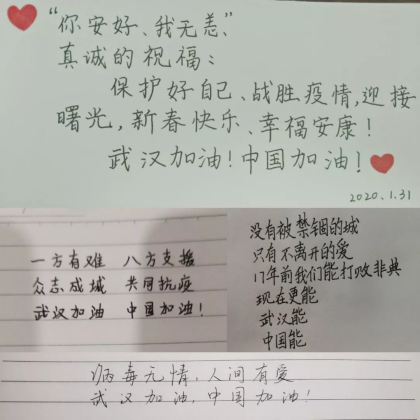 “你安好、我无恙、”
真诚的祝福：
保护好自己、战胜疫情,迎接
曙光,新春快乐、幸福安康！
武汉加油！中国加油！
2020.1.31
一方有难 八方支援
众志成城 共同抗疫
武汉加油 中国加油！
没有被禁锢的城
只有不离开的爱
17年前我们能打败非典
现在更能
武汉能
中国能
病毒无情，人间有爱
武汉加油，中国加油！